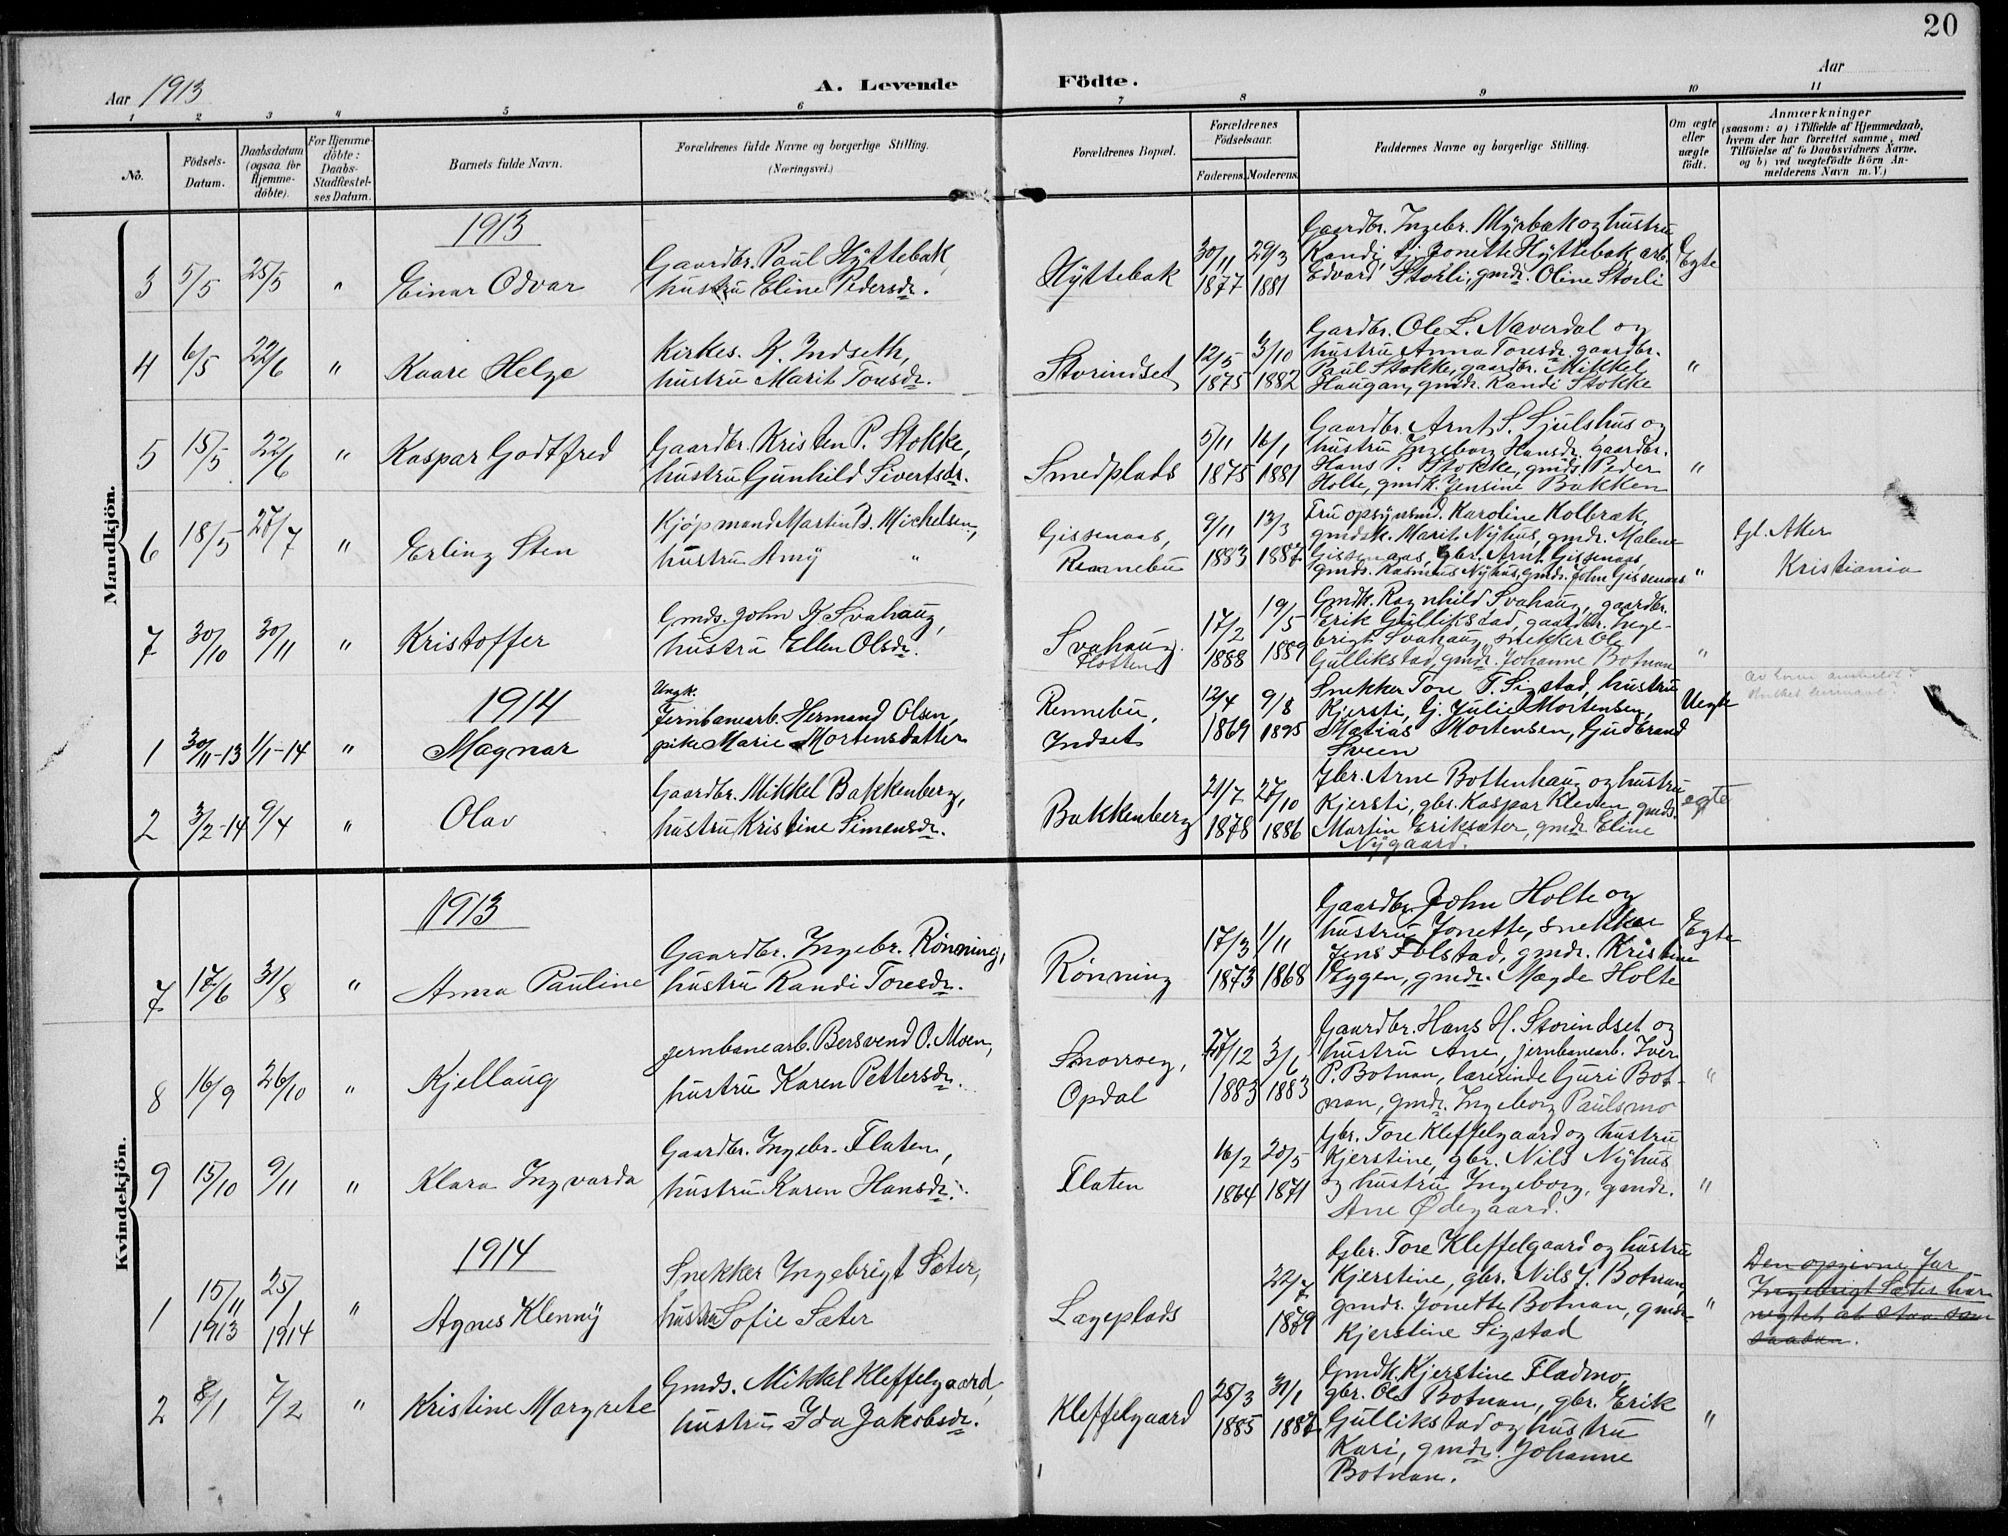 20
Aar 1913
A. Levende Födte.
Aar
1 2 3 4 5 6 7 8 9 10 11
No.
Födsels-Datum.
Daabsdatum (ogsaa for Hjemme-döbte).
For Hjemme-döbte: Daabs-Stadfæstel-ses Datum.
Barnets fulde Navn.
Forældrenes fulde Navne og borgerlige Stilling.
(Næringsvei.)
Forældrenes Bopæl.
Forældrenes Födselsaar.
Faderens. Moderens.
Faddernes Navne og borgerlige Stilling.
Om ægte eller uægte födt.
Anmærkninger
(saasom: a) i Tilfælde af Hjemmedaab,
hvem der har forrettet samme, med
Tilföielse af to Daabsvidners Navne,
og b) ved uægtefödte Börn An-
melderens Navn m.V.)
Mandkjön.
1913
3 5/5 25/5 " Einar Odvar
Gaardbr. Paul Hyttebak,
hustru Eline Pedersdr.
Hyttebak
30/11 1877 29/3 1881
Gaardbr. Ingebr. Myrbak og hustru
Randi, Gj. Jonette Hyttebak, arb.
Edvard Storli, gmdr. Oline Storli
Egte
4 6/5 22/6 " Kaare Helge
Kirkes. K. Indseth,
hustru Marit Toresdr.
Storindset
12/5 1875 3/10 1882
Gardbr. Ole L. Naverdal og
hustru Anna Toresdr. gaardbr.
Paul Stokke, gaardbr. Mikkel
Haugan, gmdr. Randi Stokke
"
5 15/5 22/6 " Kaspar Godtfred
Gaardbr. Kristen P. Stokke,
hustru Gunhild Sivertsdr.
Smedplads
5/11 1875 16/1 1881
Gaardbr. Arnt S. Sjulshus og
hustru Ingeborg Hansdr. gaardbr.
Hans P. Stokke, gmds. Peder
Holte, gmdk. Jensine Bakken
"
6 18/5 27/7 " Erling Sten
Kjøpmand Martin B. Michelsen,
hustru Amy "
Gissenaas,
Rennebu
9/11 1883 13/3 1887
Fru opsynsmd. Karoline Kolbrak,
gmdsk. Marit Nyhus, gmdr. Malene
Gissenaas, gbr. Arnt Gissenaas,
gmds. Rasmus Nyhus, gmds. John Gissenaas
"
Gl. Aker
Kristiania
7 30/10 30/11 " Kristoffer
Gmds. John K Svahaug,
hustru Ellen Olsdr.
Svahaug
Flotten
17/2 1888 19/5 1889
Gmdk. Ragnhild Svahaug, gaardbr.
Erik Gullikstad, gaardbr. Inge-
brigt Svahaug, snekker Ole
Gullikstad, gmdr. Johanne Botnan
"
1914
1 30/11-13 1/1-14 " Magnar
Ungk.
Jernbanearb. Hermand Olsen,
pike Marie Mortensdatter
Rennebu,
Indset
12/4 1869 9/8 1895
Snekker Tore T. Sigstad, hustru
Kjersti, Gj. Julie Mortensen,
Matias Mortensen, Gudbrand
Sveen
Uegte
av hvem anmeldt?
2 3/2-14 9/4 " Olav
Gaardbr. Mikkel Bakkenberg,
hustru Kristine Simensdr.
Bakkenberg
21/7 1878 27/10 1886
Gbr. Arne Bottenhaug og hustru
Kjersti, gbr. Kaspar Kleven, gmds.
Martin Eriksæter, gmdr. Eline
Nygaard.
egte
Kvindekjön.
1913
7 17/6 31/8 " Anna Pauline
Gaardbr. Ingebr. Rönning,
hustru Randi Toresdr.
Rönning
17/3 1873 1/11 1868
Gaardbr. John Holte og
hustru Jonette, snekker
Jens Folstad, gmdr. Kristine
Eggen, gmdr. Magde Holte
Egte
8 16/9 26/10 " Kjellaug
Jernbanearb. Bersvend O. Moen,
hustru Karen Pettersdr.
Snorroeg,
Opdal
27/12 1883 3/6 1883
Gaardbr. Hans H. Storindset og
hustru Ane, jernbanearb. Iver
P. Botnan, lærerinde Guri Bot-
nan, gmdr. Ingeborg Paulsmo
"
9 15/10 9/11 " Klara Ingvarda
Gaardbr. Ingebr. Flaten,
hustru Karen Hansdr.
Flaten
16/2 1864 20/5 1871
Gbr. Tore Kleffelgaard og hustru
Kjerstine, gbr. Nils Nyhus
og hustru Ingeborg, gmdr.
Ane Ødegaard.
"
1914
1 15/11 1913 25/1 1914 " Agnes Klenny
Snekker Ingebrigt Sæter,
hustru Sofie Sæter
Lægeplads
22/7 1879
Gbr. Tore Kleffelgaard og hustru
Kjerstine, gbr. Nils J. Botnan,
gmdr. Jonette Botnan, gmdr.
Kjerstine Sigstad
"
Den opgivne Far
Ingebrigt Sæter har
negtet at staa som
saadan.
2 8/1 7/2 " Kristine Margrete
Gmds. Mikkel Kleffelgaard,
hustru Ida Jakobsdr.
Kleffelgaard
25/3 1885 31/1 1887
Gmdk. Kjerstine Fladmo,
gbr. Ole Botnan, gbr. Erik
Gullikstad og hustru
Kari, gmdr. Johanne
Botnan.
"